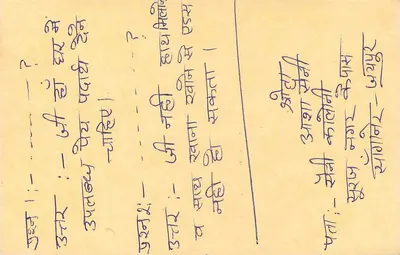 प्रश्न 1:- - - - - - - - ?
उत्तर :- जी हां घर में
उपलब्ध पेय पदार्थ देने
चाहिए।
प्रश्न 2:- - - - - - - - ?
उत्तर :- जी नहीं हाथ मिलाने
व साथ खाना खाने से एड्स
नहीं हो सकता।
श्रोता
आशा सैनी
पता :- सैनी कॉलोनी
सूरज नगर के पास
सांगानेर - जयपुर